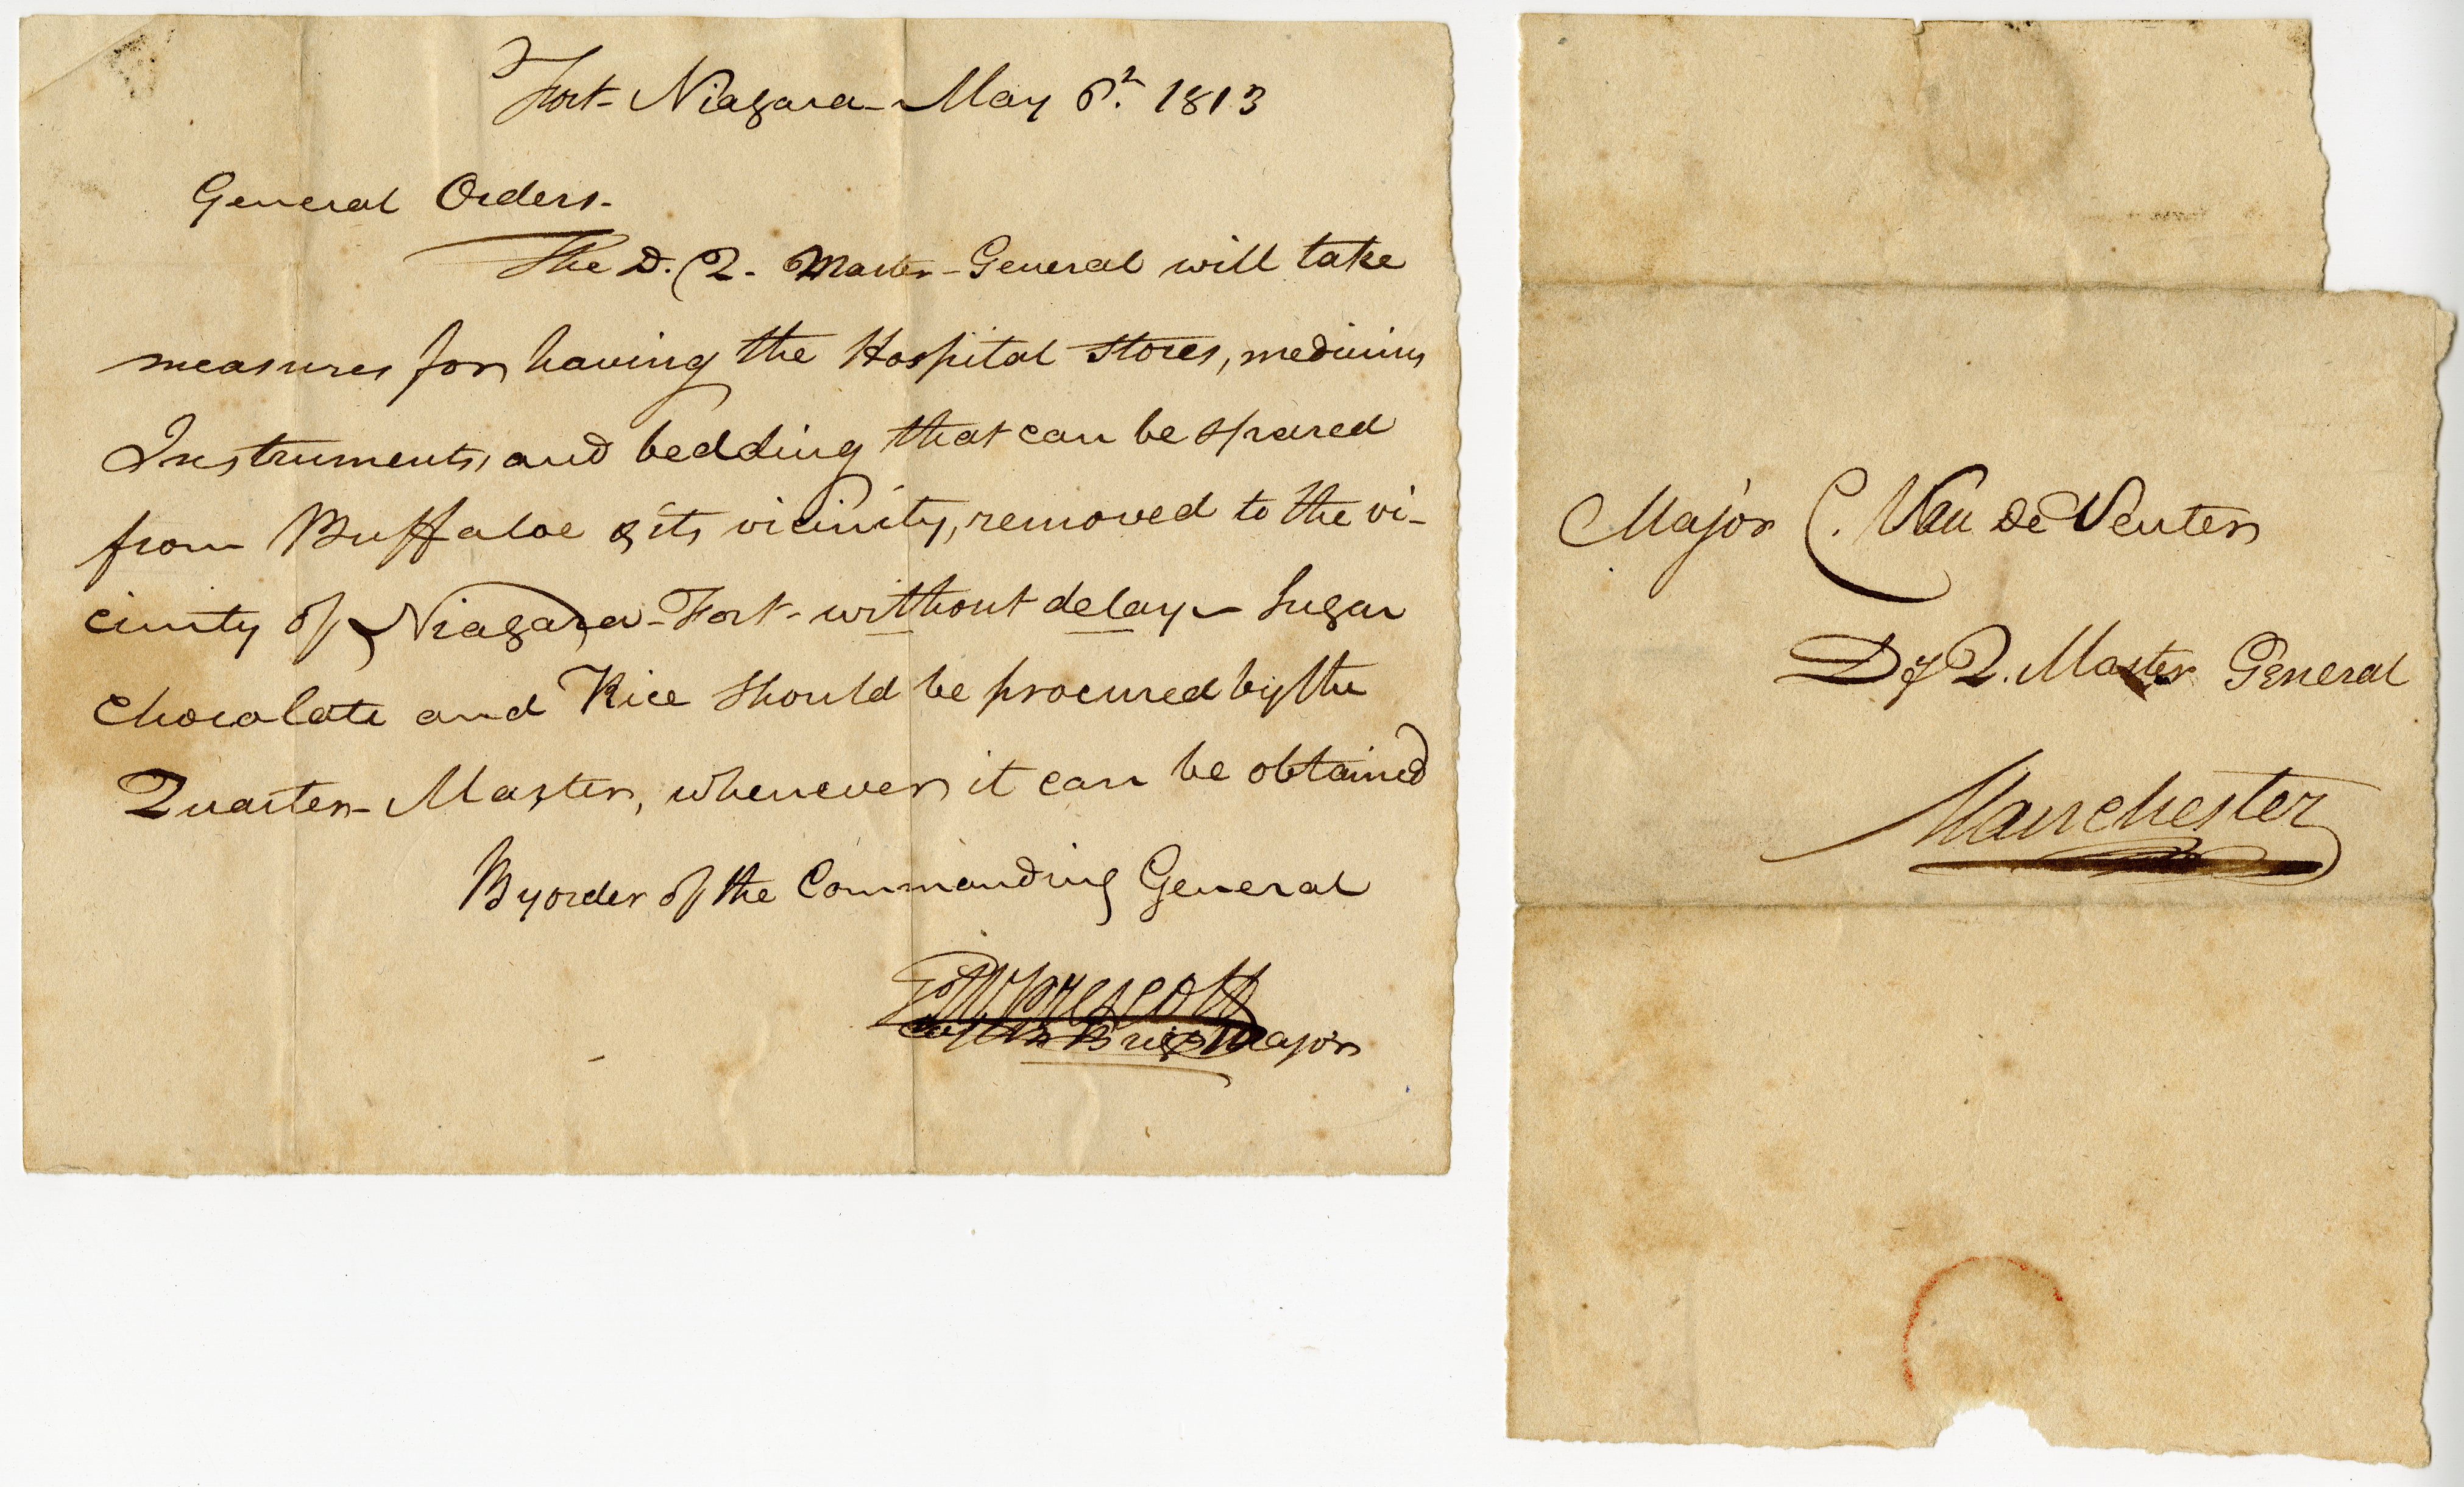 Fort Niagara May 6th 1813
General Orders.
The D. Q. Master General will take
measures for having the Hospital Stores, medicines
Instruments, and bedding that can be spared
from Buffaloe & its vicinity, removed to the vi-
cinity of Niagara Fort without delay - Sugar
Chocolate and Rice Should be procured by the
Quarter-Master, whenever it can be obtained
By order of the Commanding General
Prescott
Brig Major
Major C. Van De Venter
Dy Q. Master General
Manchester